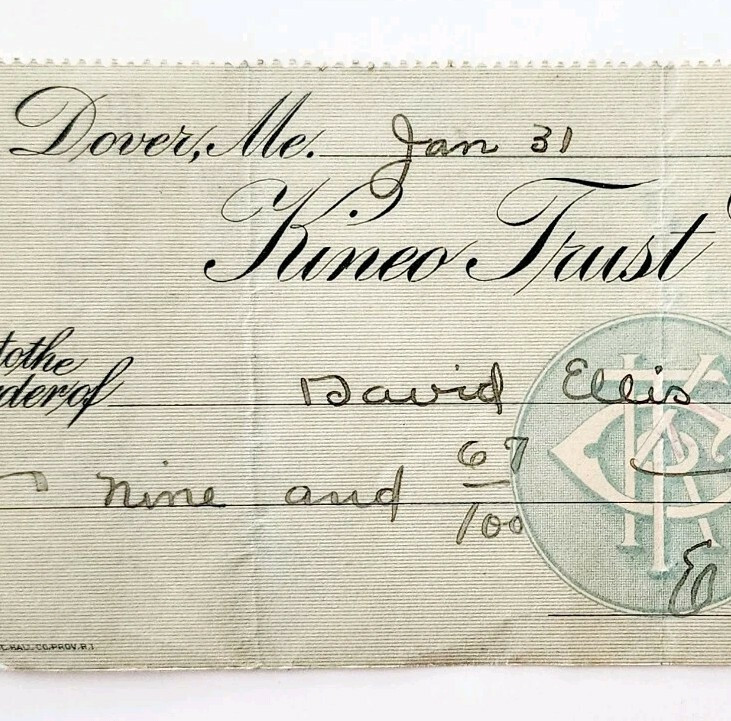 Dover, Me. Jan 31
Kineo Trust
to the
der of David Ellis
nine and 67/100
L. HALL CO. PROV. R.I.